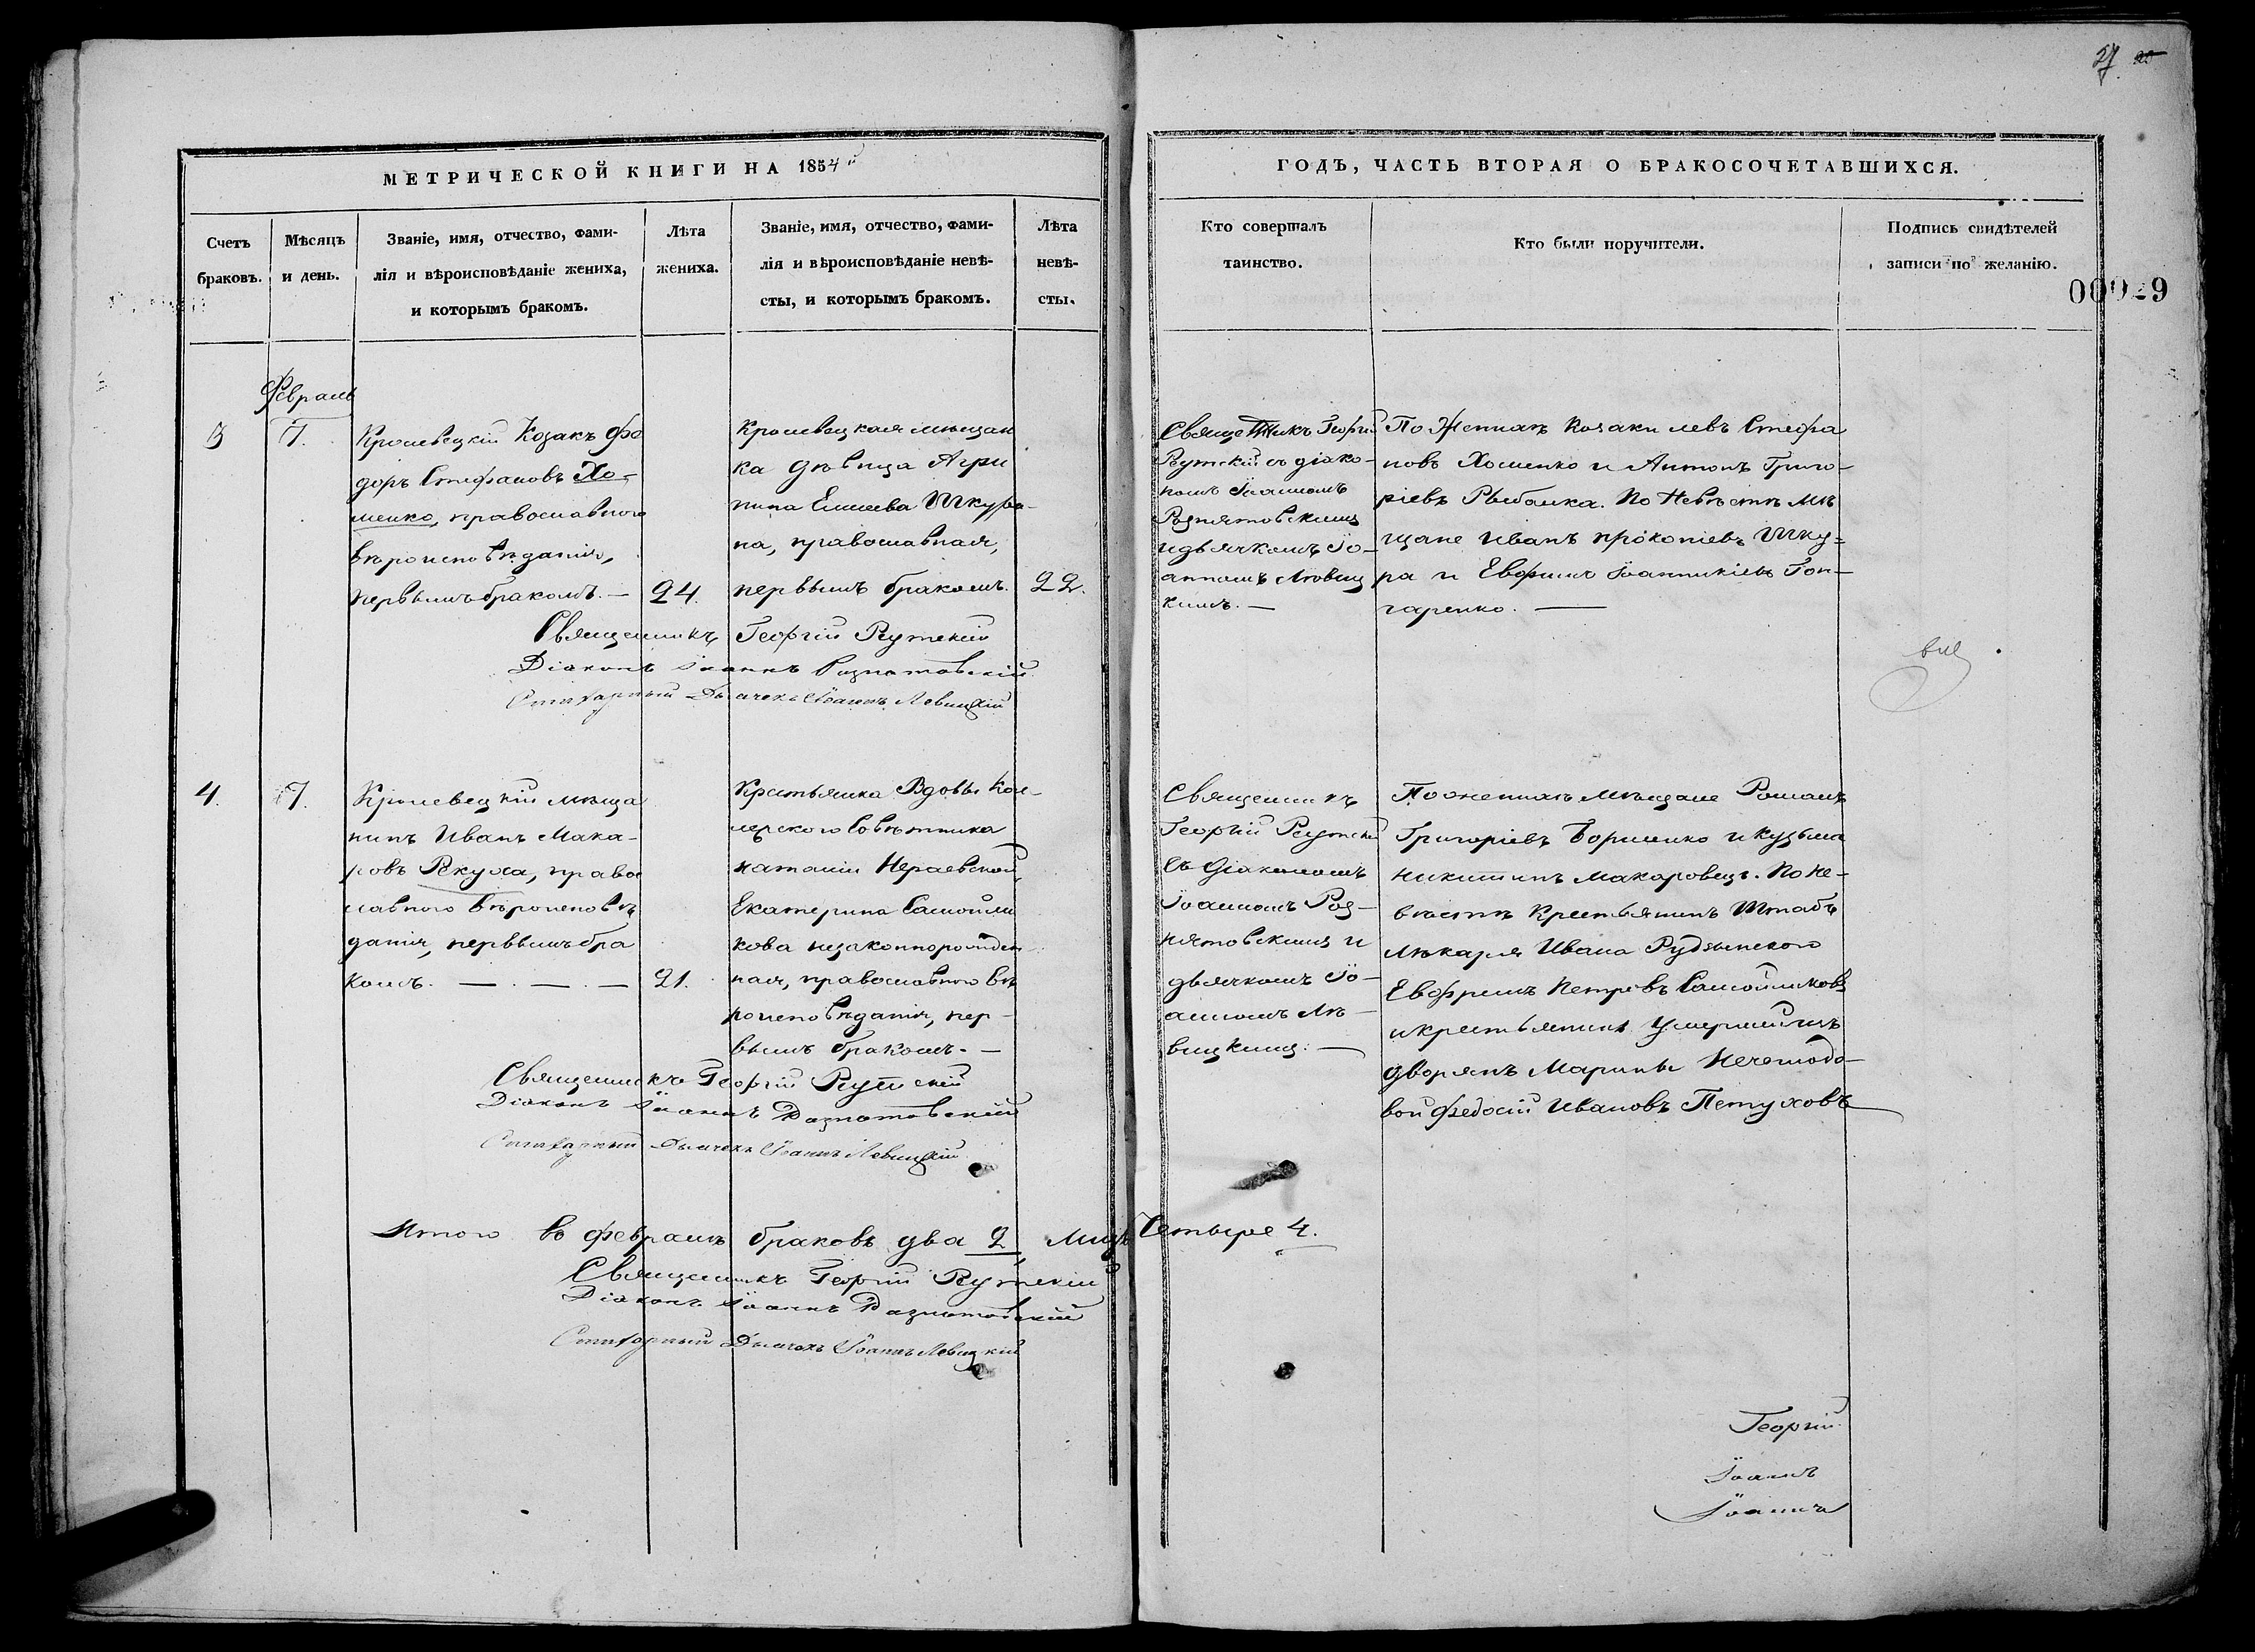 27 20
МЕТРИЧЕСКОЙ КНИГИ НА 1854
Счетъ
браковъ.
Мѣсяцъ
и день.
Званіе, имя, отчество, фами-
лія и вѣроисповѣданіе жениха,
и которымъ бракомъ.
Лѣта
жениха.
Званіе, имя, отчество, фами-
лія и вѣроисповѣданіе невѣ-
сты, и которымъ бракомъ.
Лѣта
невѣ-
сты.
ГОДЪ, ЧАСТЬ ВТОРАЯ О БРАКОСОЧЕТАВШИХСЯ.
Кто совершалъ
таинство.
Кто были поручители.
Подпись свидѣтелей
записи по желанію.
Февраль
3
7.
Кролевецкій Козакъ Фе
доръ Стефановъ Хо-
менко, православнаго
вѣроисповѣданія,
первымъ бракомъ. —
24.
Кролевецкая мѣщан
ка дѣвица Агри
пина Елисеева Шкура-
на, православная,
первымъ бракомъ.
22.
Священникъ Георгій
Рутскій съ діако-
номъ Іоанномъ
Рознятовскимъ
и дьячкомъ Іо-
анномъ Левиц
кимъ. —
По Женихѣ Козаки левъ Стефа
новъ Хоменко и Антонъ Григо-
ріевъ Рыбалка. По Невѣстѣ Мѣ
щане Иванъ Прокопіевъ Шку=
ра и Евфимъ Іоанникіевъ Гон-
чаренко. —
Священникъ Георгій Рутскій
Діаконъ Іоаннъ Рознатовскій
Стихарный Дьячекъ Іоаннъ Левицкій
4.
7.
Кролевецкій мѣща
нинъ Иванъ Мака-
ровъ Рекуха, право
славнаго вѣроисповѣ
данія, первымъ бра
комъ. — . — . —
21.
Крестьянка Вдовы Кол-
лержского Совѣтника
Наталіи Нераевской,
Екатерина Самойли
кова незаконнорожден-
ная, православного вѣ
роисповѣданія, пер-
вымъ бракомъ. —
Священникъ
Георгій Рутскій
Съ Діакономъ
Іоанномъ Роз-
нятовскимъ и
дьячкомъ Іо-
анномъ Ле-
вицкимъ. —
По женихѣ Мѣщане Романъ
Григоріевъ Борисенко и Кузьма
Никитинъ Макаровецъ. По Не-
вѣстѣ Крестьянинъ Штабъ
лѣкаря Ивана Рудзынского
Евфремъ Петровъ Самойликовъ
и крестьянинъ умершихъ
дворянъ Марины Нечемодо-
вой Федосій Ивановъ Петуховъ
Священникъ Георгій Рутскій
Діаконъ Іоаннъ Рознатовскій
Стихарный Дьячекъ Іоаннъ Левицкій
Итого въ февралѣ браковъ два 2, Лицъ Четыре 4.
Священникъ Георгій Рутскій
Діаконъ Іоаннъ Рознатовскій
Стихарный Дьячекъ Іоаннъ Левицкій
Георгій
Іоаннъ
Іоаннъ